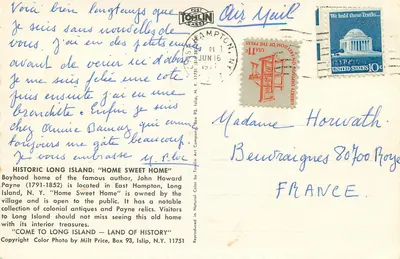 Voilà bien longtemps que
je suis sans nouvelles de
vous. J'ai eu des petits ennuis
avant de venir ici d'abord
je me suis fêlé une côte
puis ensuite j'ai eu une
bronchite. Enfin je suis
chez Annie qui comme
toujours me gâte beaucoup.
Je vous embrasse M.
HISTORIC LONG ISLAND: "HOME SWEET HOME"
Boyhood home of the famous author, John Howard
Payne (1791-1852) is located in East Hampton, Long
Island, N. Y. "Home Sweet Home" is owned by the
village and is open to the public. It has a notable
collection of colonial antiques and Payne relics. Visitors
to Long Island should not miss seeing this old home
with its interior treasures.
"COME TO LONG ISLAND — LAND OF HISTORY"
Copyright Color Photo by Milt Price, Box 93, Islip, N.Y. 11751
TOMLIN
Air Mail
HAMPTON, NY
JUN 16
UNITED STATES 10c
Madame Horvath
80700 Roye
FRANCE.